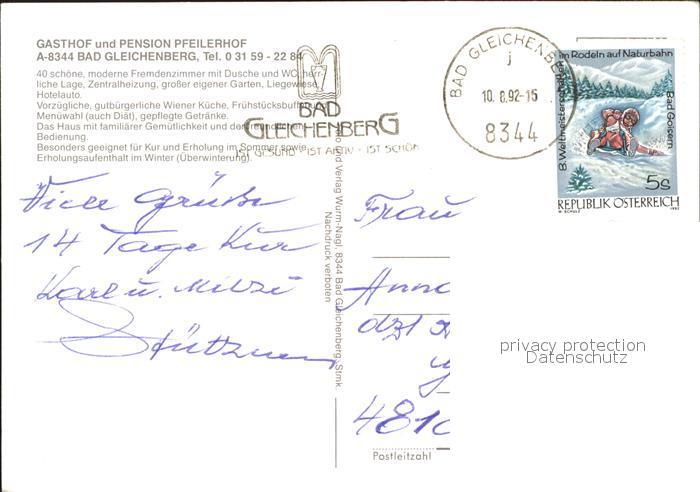 GASTHOF und PENSION PFEILERHOF
A-8344 BAD GLEICHENBERG, Tel. 0 31 59 - 22 84
40 schöne, moderne Fremdenzimmer mit Dusche und WC, herr-
liche Lage, Zentralheizung, großer eigener Garten, Liegewiese,
Hotelauto.
Vorzügliche, gutbürgerliche Wiener Küche, Frühstücksbuffet,
Menüwahl (auch Diät), gepflegte Getränke.
Das Haus mit familiärer Gemütlichkeit und der freundlichen
Bedienung.
Besonders geeignet für Kur und Erholung im Sommer sowie
Erholungsaufenthalt im Winter (Überwinterung)
BAD
GLEICHENBERG
IST GESUND · IST AKTIV · IST SCHÖN
BAD GLEICHENBERG
j
10.8.92-15
8344
8. Weltmeisterschaften im Rodeln auf Naturbahn
Bad Goisern
5s
REPUBLIK ÖSTERREICH
1992
Viele Grüße
14 Tage Kur
Karl u. Mitzi
und Verlag Wurm-Nagl, 8344 Bad Gleichenberg, Stmk.
Nachdruck verboten
Frau
Anna
dzt
4810
Postleitzahl
privacy protection
Datenschutz